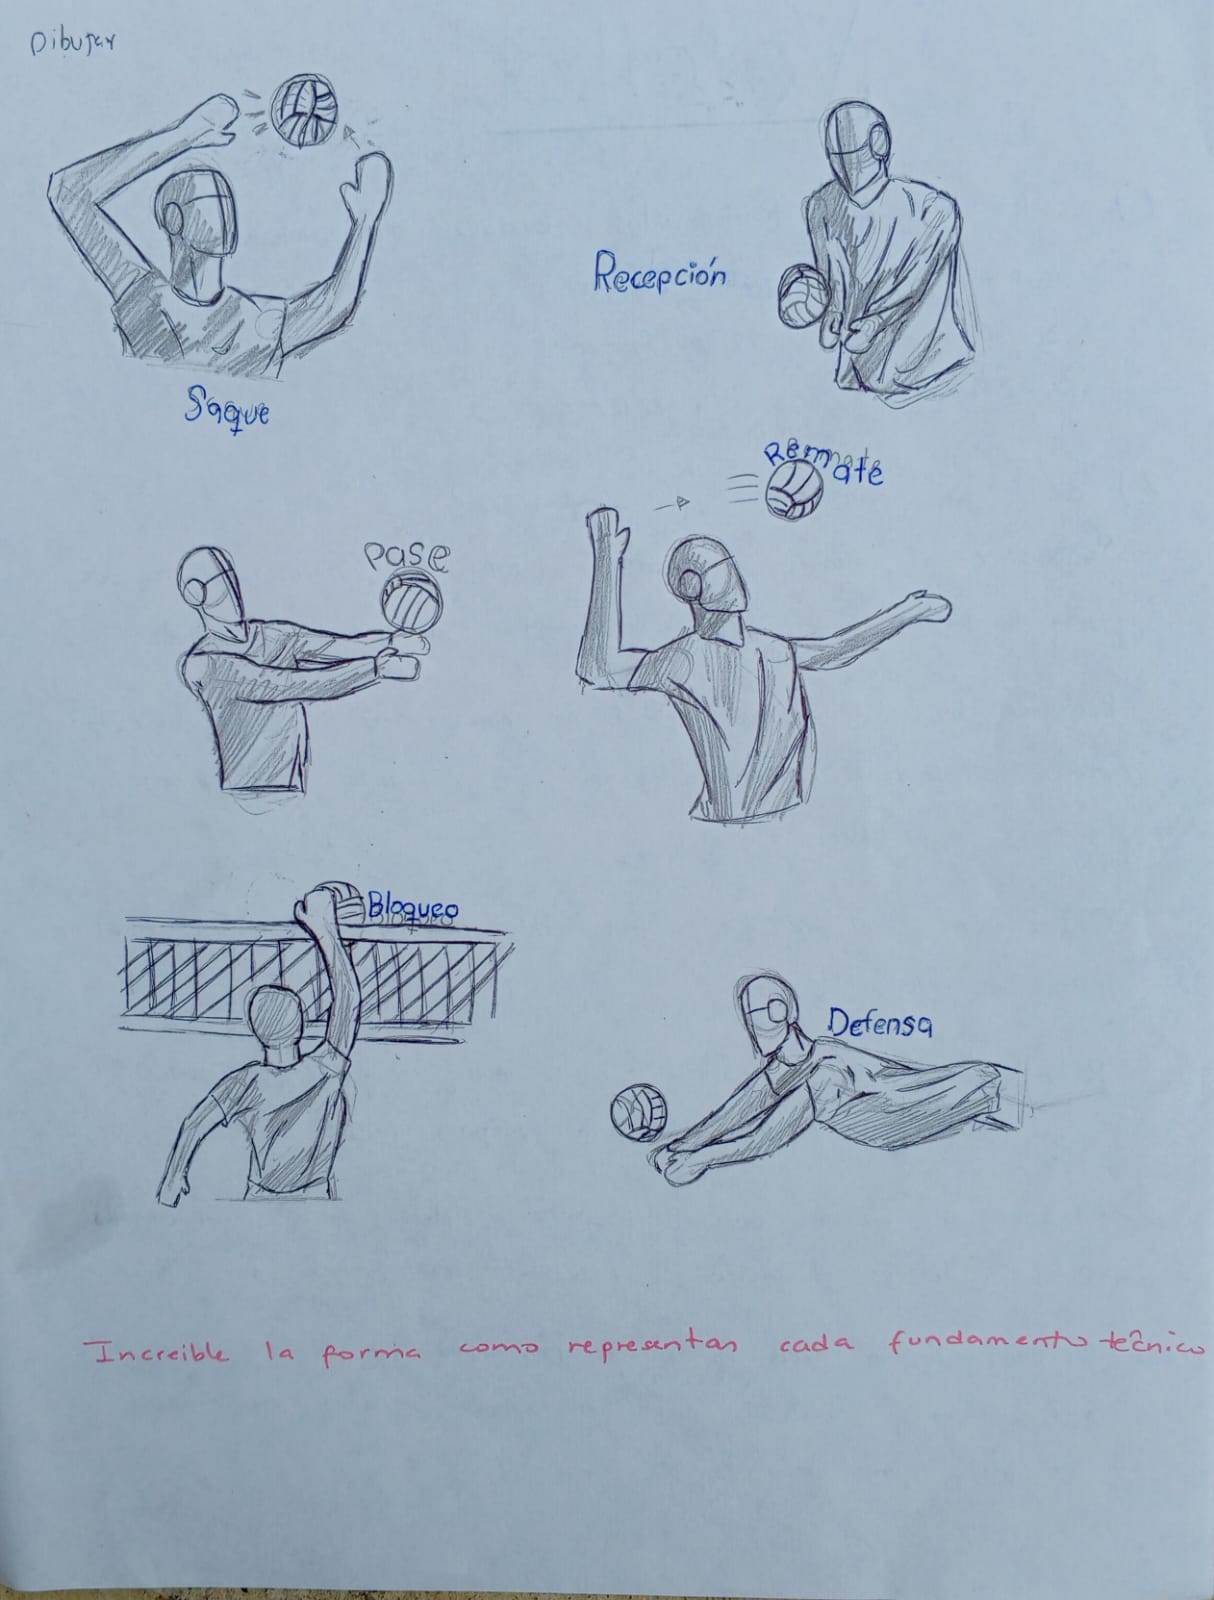 Dibujar
Saque
Recepción
Pase
Remate
Bloqueo
Defensa
Increible la forma como representas cada fundamento técnico